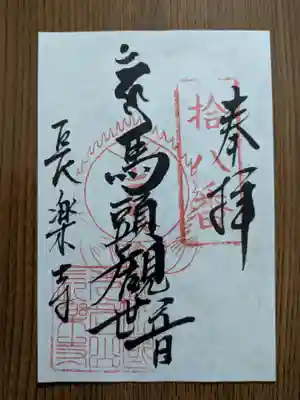 奉拝
拾八番
馬頭觀世音
長楽寺